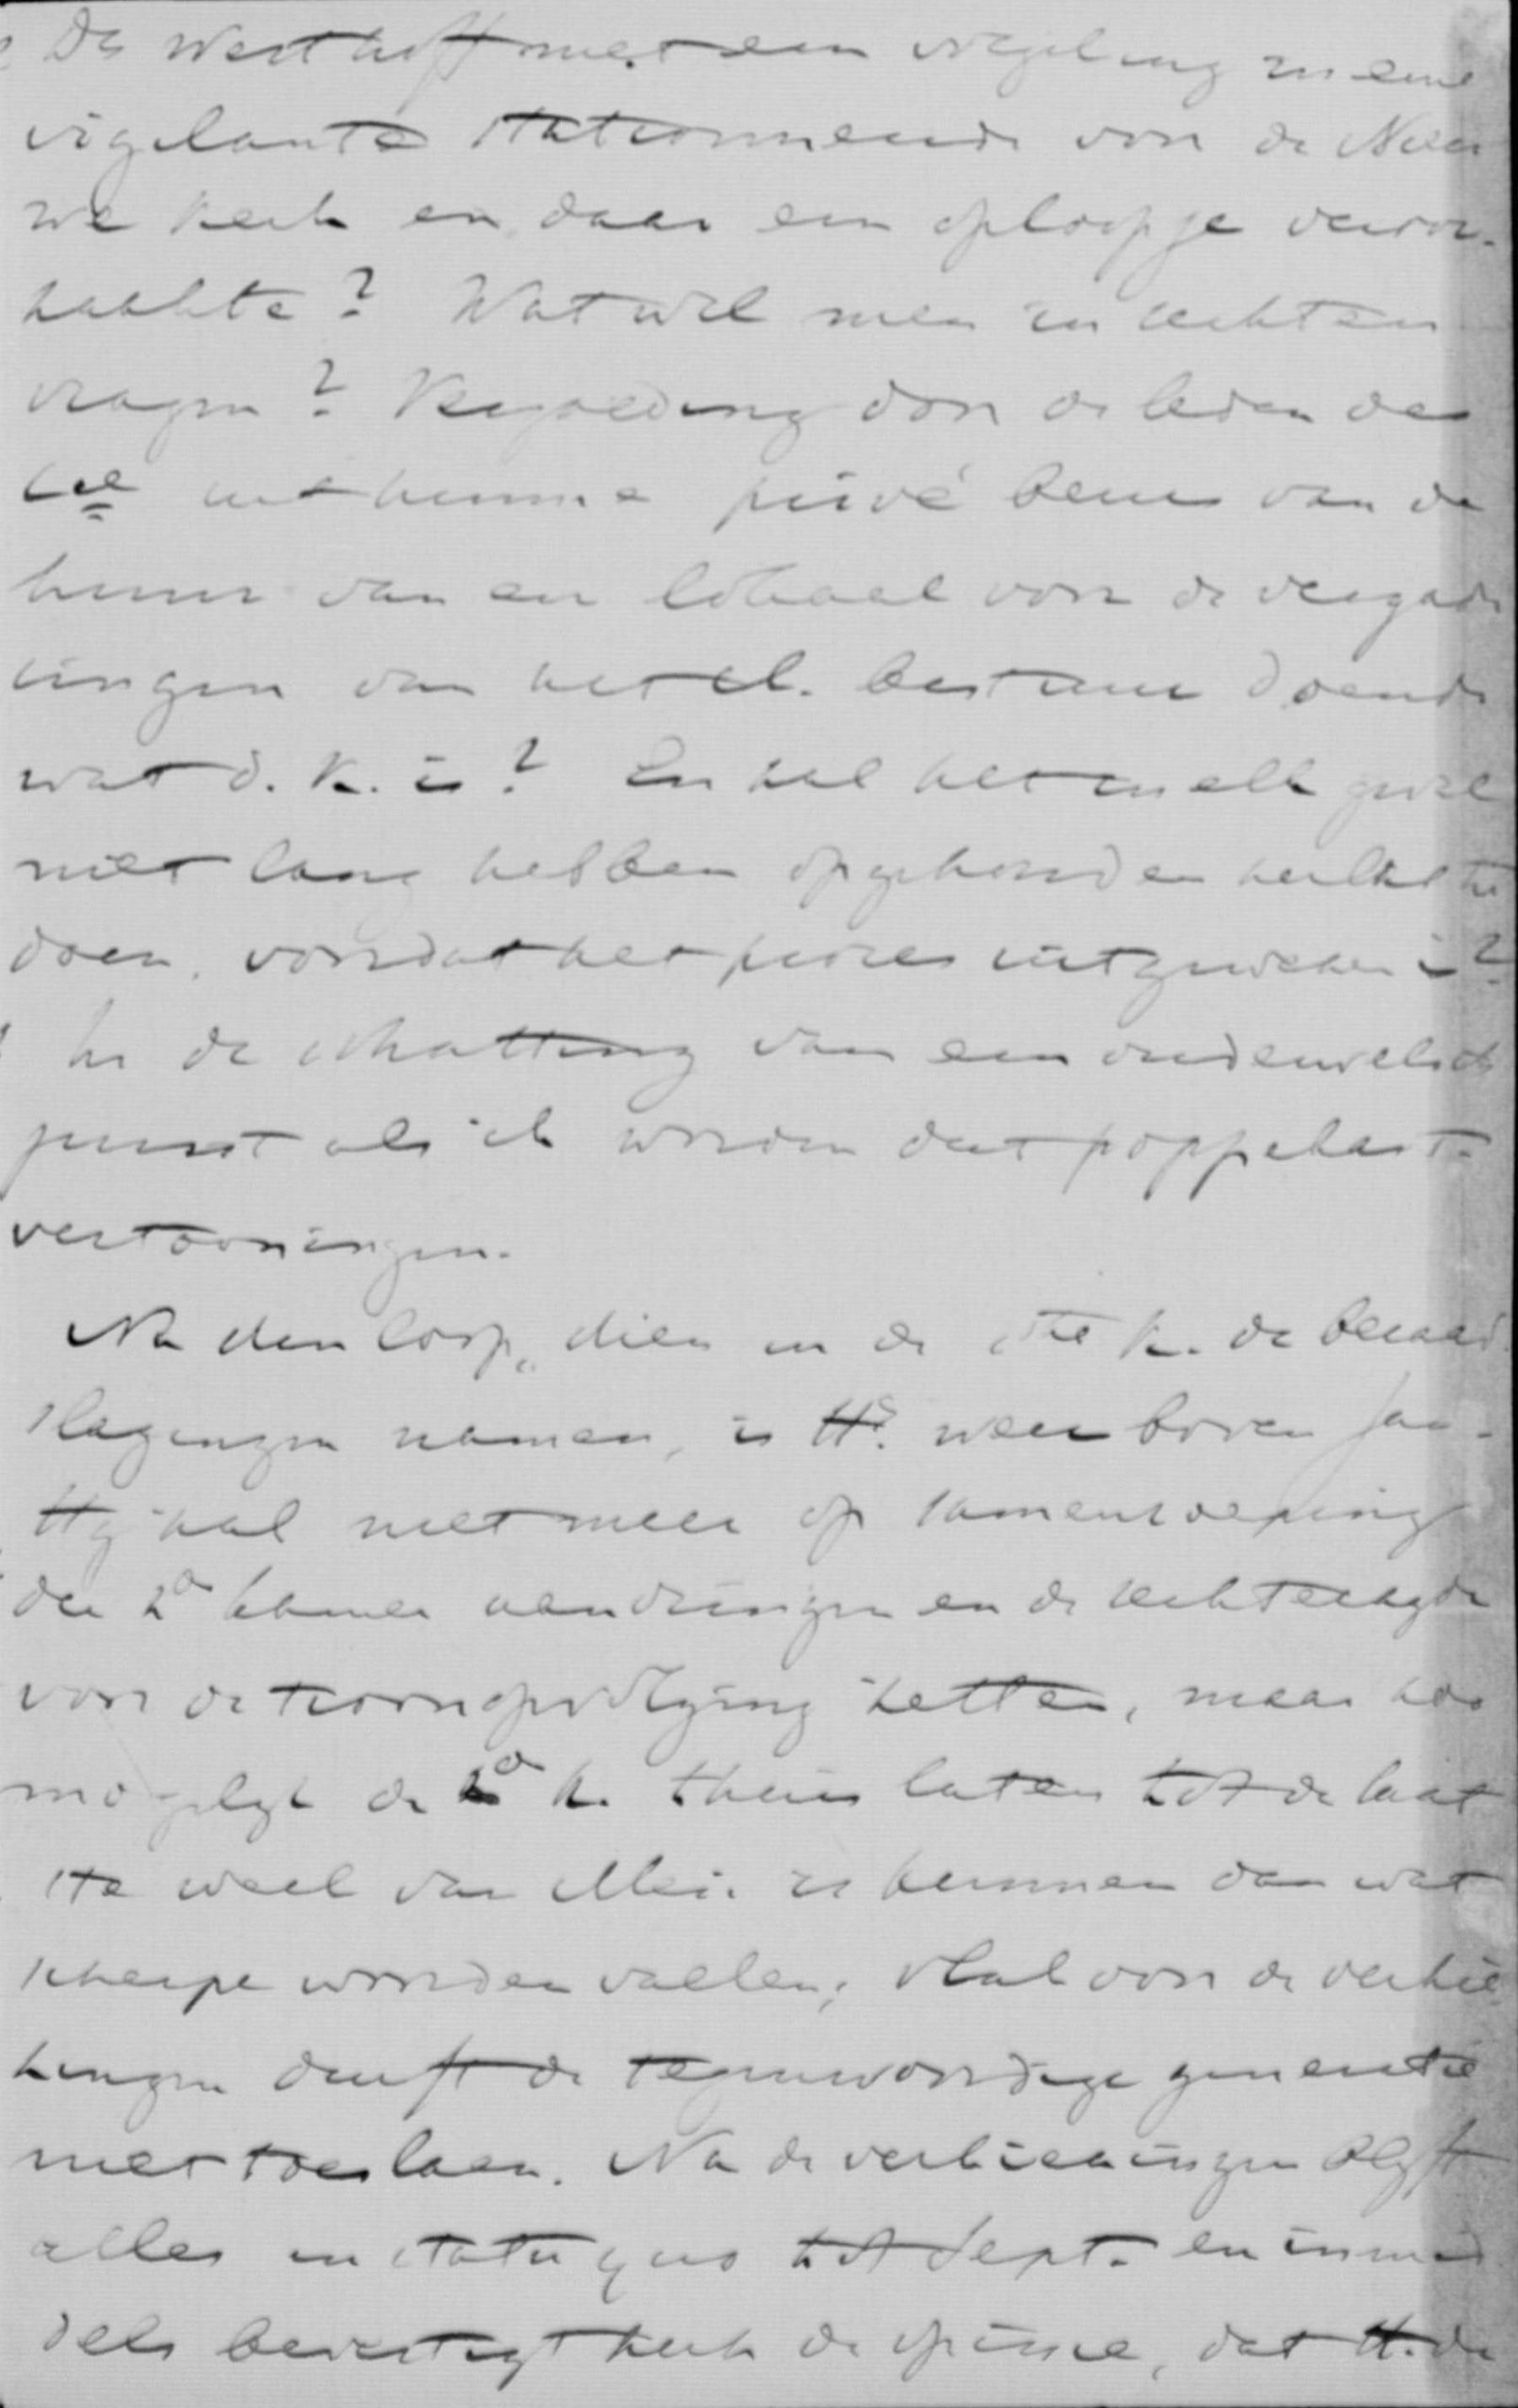 Ds Westhoff met een vregeling in eene
vigilante stationneerende voor de Nieu
we Kerk en daar een oploopje veroor-
zaakte? Wat wil men in rechten
vragen? Vergoeding door de leden der
cie uit hunne privé beurs van de
huur van een lokaal voor de vergade
ringen van het cl. bestuur doende
wat d. K. is? En zal het in elk geval
niet lang hebben opgehouden zulks te
doen, voordat het proces uitgewezen is?
In de schatting van een ouderwetsch
jurist als ik worden dat poppekast-
vertooningen.
Na den loop, dien in de 1ste K. de beraad
slagingen namen, is Hk. weer boven Jan.
Hij zal niet meer op samenroeping
der 2e Kamer aandringen en de rechteragde
voor de troonopvolging zetten, maar zoo
mogelijk de 2e K. thuis laten tot de laat
ste week van Mei. Er kunnen dan wat
scherpe woorden vallen; vlak voor de verkie
zingen durft de tegenwoordige generatie
niet toeslaan. Na de verkiezingen blijft
alles in statu quo tot Sept. en inmid
dels bevestigt zich de opinie, dat H. de